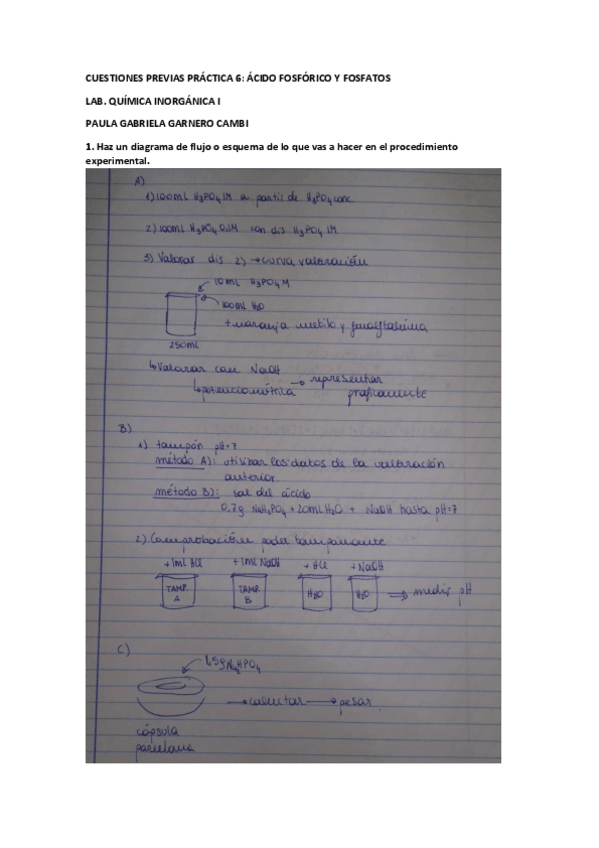 CUESTIONES PREVIAS PRÁCTICA 6: ÁCIDO FOSFÓRICO Y FOSFATOS
LAB. QUÍMICA INORGÁNICA I
PAULA GABRIELA GARNERO CAMBI
1. Haz un diagrama de flujo o esquema de lo que vas a hacer en el procedimiento
experimental.
A)
1) 100mL H₃PO₄ 1M a partir de H₃PO₄ conc
2) 100mL H₃PO₄ 0.1M con dis H₃PO₄ 1M
3) Valorar dis 2) → curva valoración
10mL H₃PO₄ M
100mL H₂O
+ naranja metilo y fenolftaleína
250mL
↳ Valorar con NaOH
↳ potenciométrica → representar
gráficamente
B)
1) tampón pH=7
método A): utilizar los datos de la valoración
anterior
método B): sal del ácido
0.7g NaH₂PO₄ + 20mL H₂O + NaOH hasta pH=7
2) Comprobación poder tamponante
+1mL HCl +1mL NaOH + HCl + NaOH
TAMP. A TAMP. B H₂O H₂O ⇒ medir pH
C)
1,5g Na₂HPO₄
→ calentar → pesar.
cápsula
porcelana